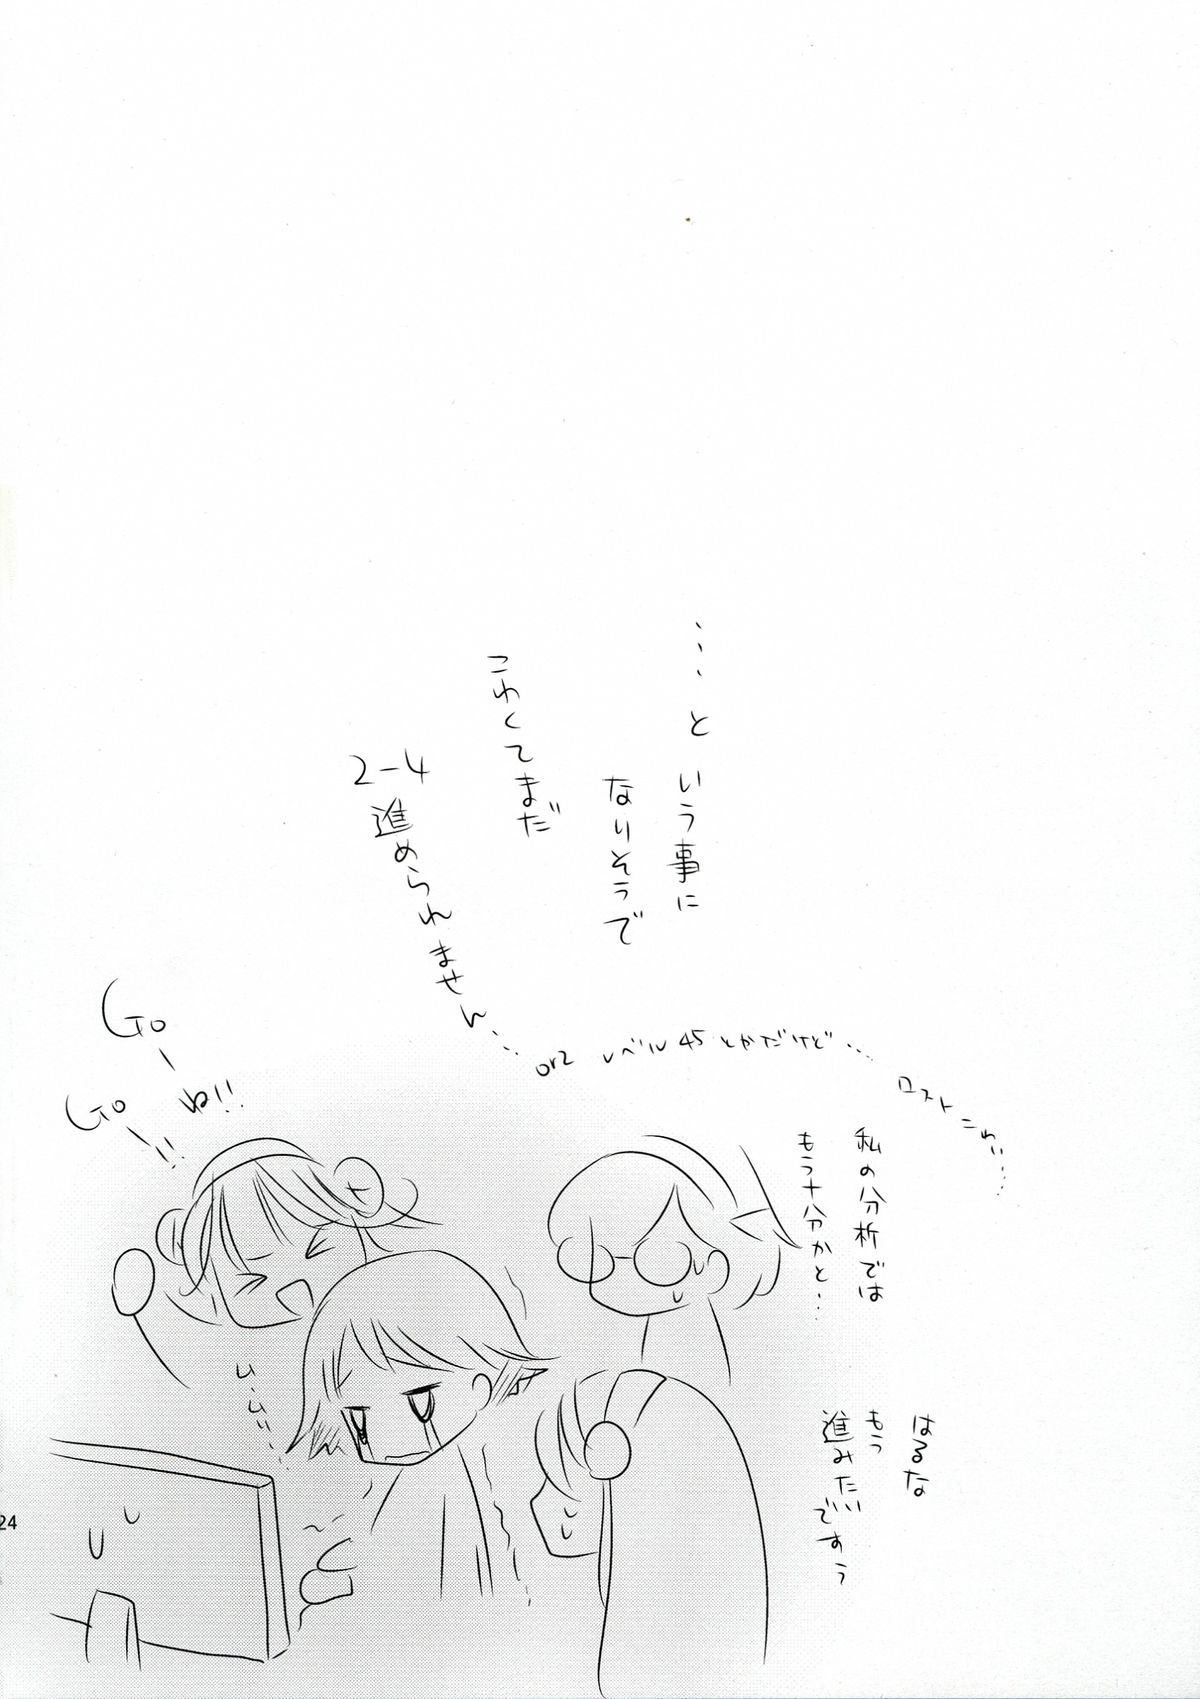 …と
いう事に
なりそうで
こわくてまだ
2-4
進められません…
orz レベル45とかだけど…
ロストこわい…
Go
Go
ーね!!
ー!!
私の分析では
もう十分かと…
ひぃぃぃ…
はるな
もう
進みたいですぅ
24